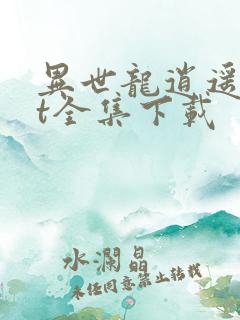 異世龍逍遥
t全集下載
水瀾晶
未经同意禁止转载